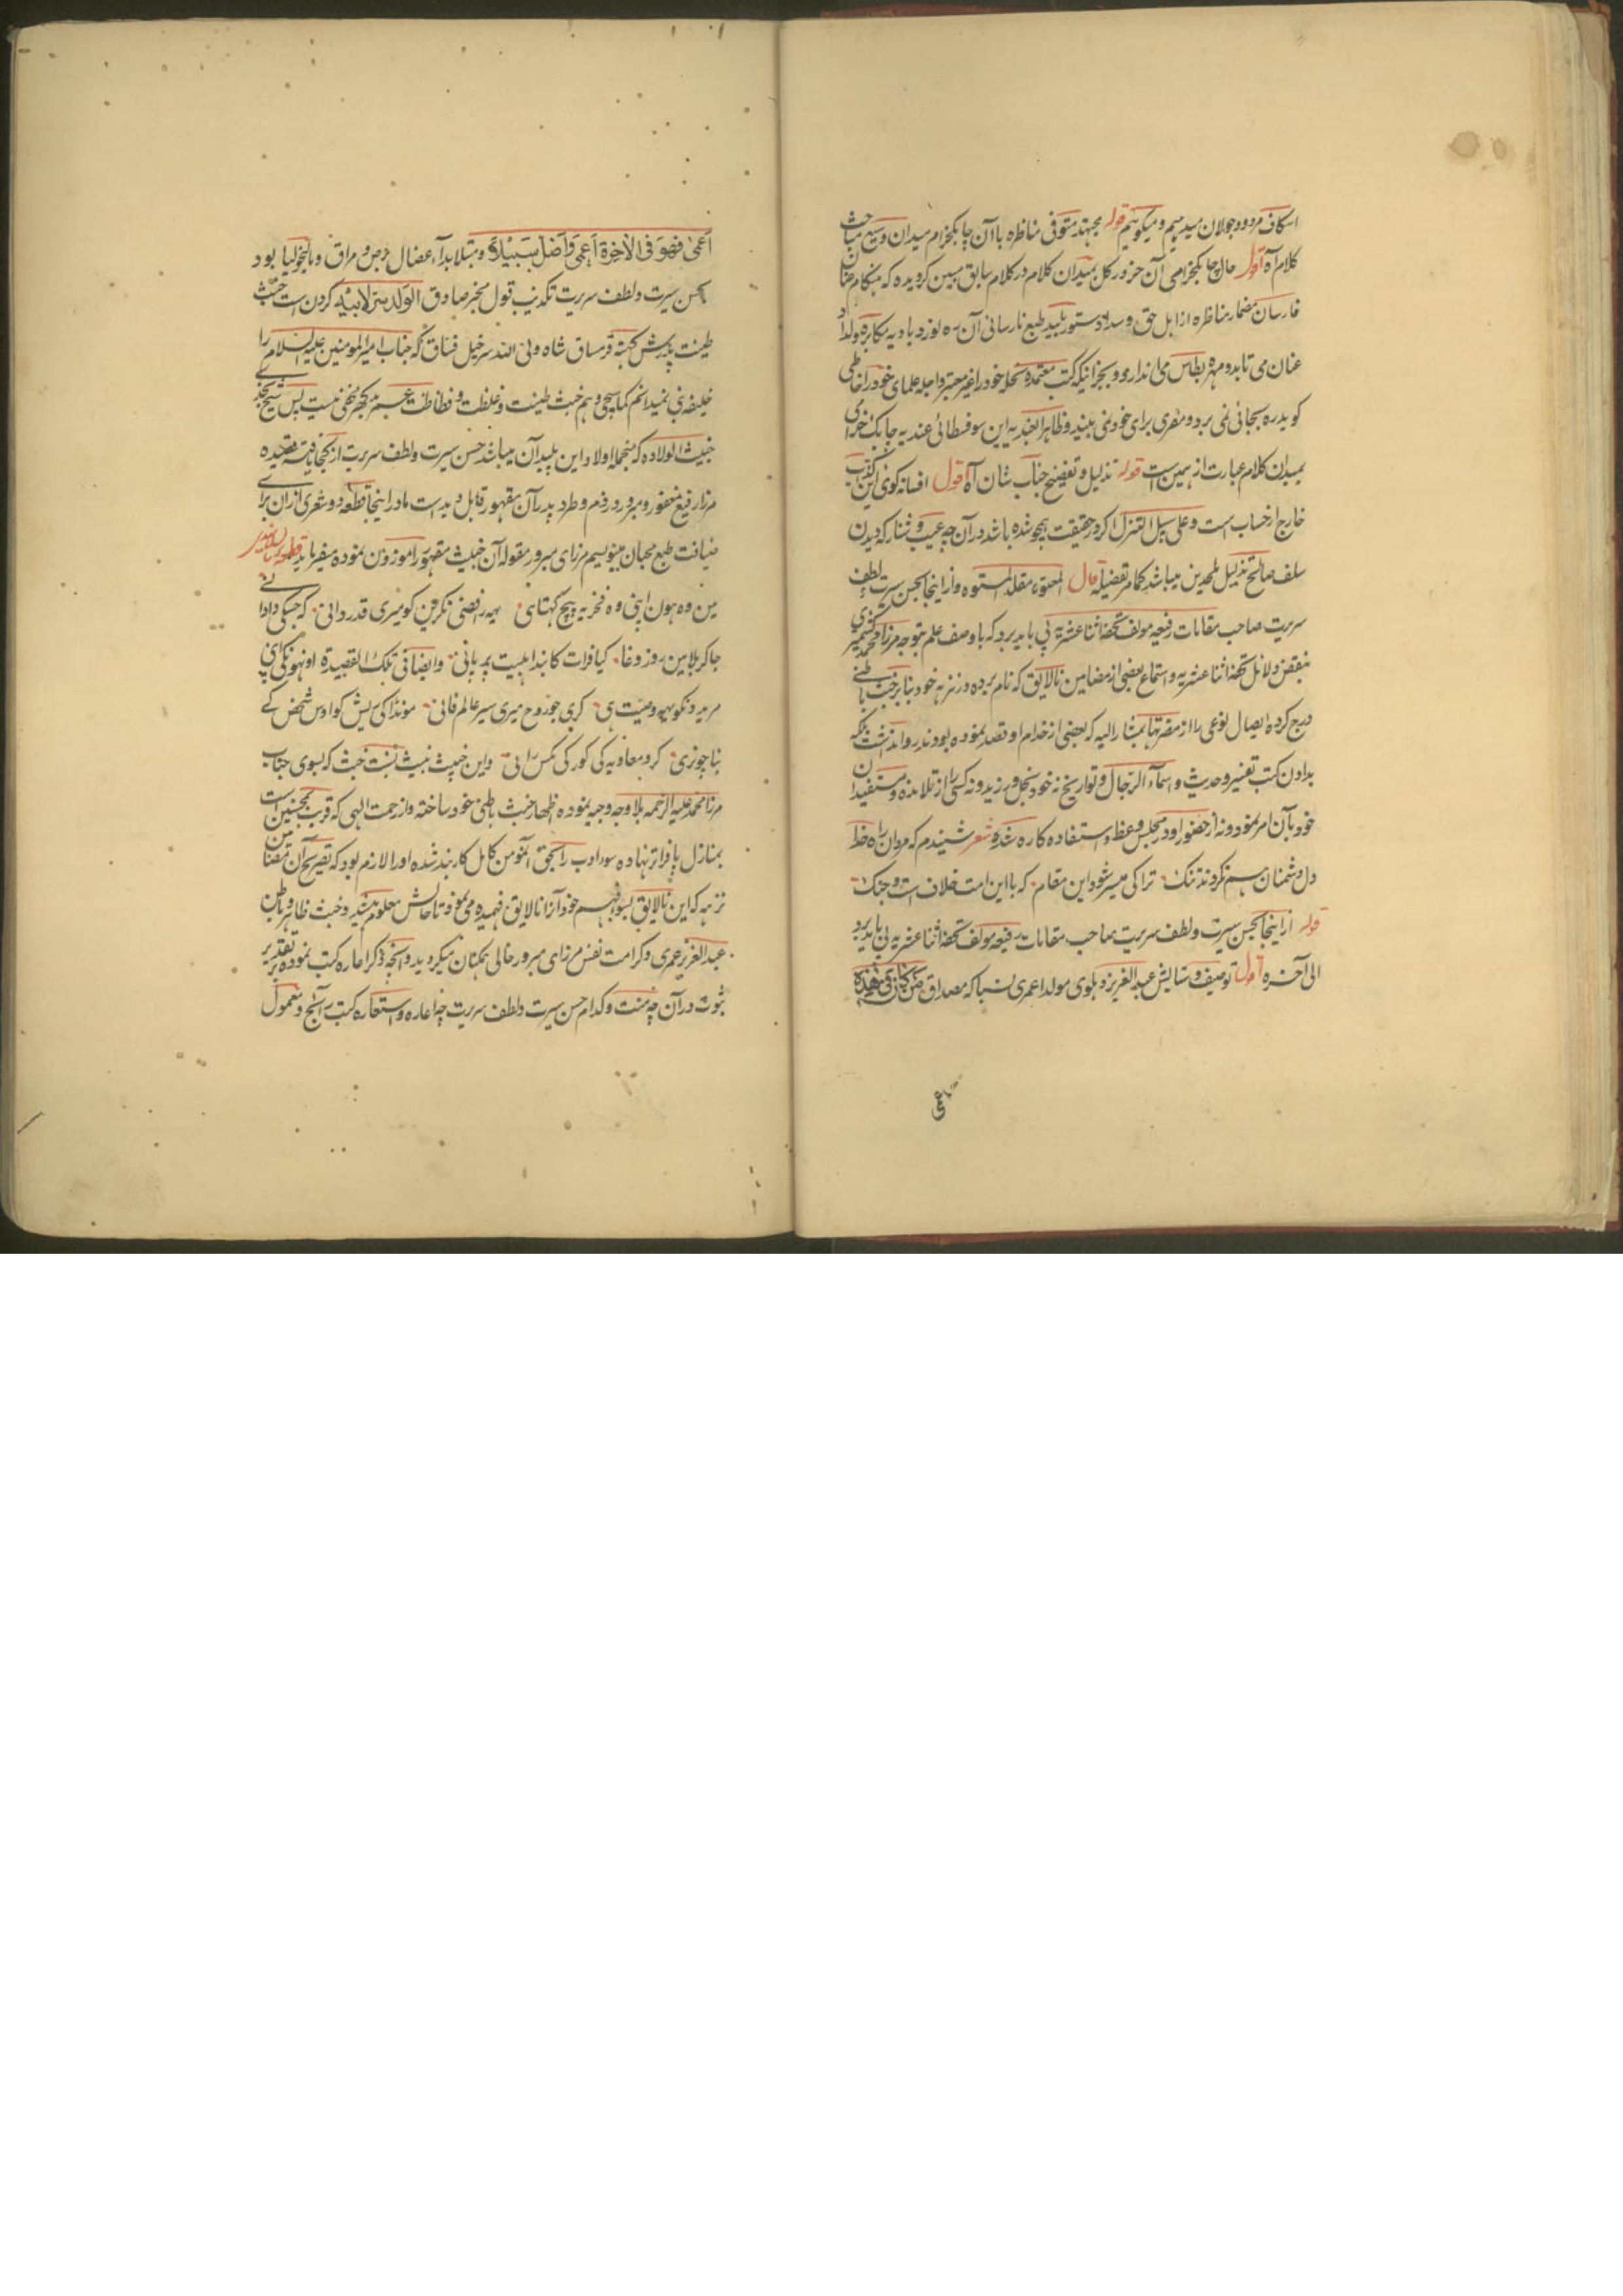 اسکاف مردود جولان میدهیم و میکوئیم قوله مجتهد متوفی مناظره باآن چابکخرام میدان وسیع مباحث
کلام آه اقول حال چابکخرامی آن خر در کل بمیدان کلام در کلام سابق مبین کردیده که بهنکام عنان
فارسان مضمار مناظره از اهل حق و سداد دستور پلید طبع نارسائی آن ره نورد بادیه مکابره ولداد
عنان می تابد و مهره بطاس می اندازد و بجز اینکه کتب معتمده نحله خود را غیر معتبر و اجله علمای خود را خاطی
کوید ره بجائی نمی برد و مفری برای خود نمی بیند و ظاهرا عندیه این سوفسطائی عندیه چابک خرامی
بمیدان کلام عبارت از همین ست قوله تذلیل و تفضیح جناب شان آه اقول افسانه کوئی این کذاب
خارج از حساب ست و علی سبیل التنزل اکر در حقیقت همچو شده باشد در آن چه عیب و شنار که دیدن
سلف صالح تذلیل ملحدین میباشد کما مر تفصیله قال المعتوه مقلد المستوه و از اینجا بحسن سیرت و لطف
سریرت صاحب مقامات رفیعه مولف تحفه اثنا عشریه پی باید برد که با وصف علم بتوجه مرزا محمد کشمیری
بنقض دلائل تحفه اثنا عشریه و استماع بعضی از مضامین نالایق که نام برده در نزهه خود بنا بر خبث باطنی
درج کرده ایصال نوعی را از مضرتها بمشار الیه که بعضی از خدام او قصد نموده بودند روا نداشت بلکه
بدادن کتب تفسیر و حدیث و اسماء الرجال و تواریخ نه خود بخل ورزید و نه کسی را از تلامذه و مستفیدان
خود بآن امر نمود و نه از حضور او در مجلس وعظ و استفاده کاره شد شعر شنیدم که مردان راه خدا
دل دشمنان هم نکردند تنک ترا کی میسر شود این مقام که با این امت خلاف ست و جنک
قوله از اینجا بحسن سیرت و لطف سریرت صاحب مقامات رفیعه مولف تحفه اثنا عشریه پی باید برد
الی آخره اقول توصیف و ستایش عبد العزیز دهلوی مولدا عمری نسبا که مصداق من کان فی هذه
اعمی
اَعْمٰی فَهُوَ فِی الْاٰخِرَةِ اَعْمٰی وَاَضَلُّ سَبِیْلًا و مبتلا بداء عضال برص و مراق و مالیخولیا بود
بحسن سیرت و لطف سریرت تکذیب قول مخبر صادق الولد سر لابیه کردن ست خبث
طینت پدرش کبته قرمساق شاه ولی الله سرخیل فساق که جناب امیر المومنین علیه السلام را
خلیفه نمیدانم کما سیجئ و هم خبث طینت و غلظت و فظاظت مخفی نیست پس شیخ نجدی
خبیث الولاده که منجمله اولاد این پلیدان میباشد حسن سیرت و لطف سریرت از کجا یافته قصیده
مرزا رفیع مغفور و مبرور در ذم و طرد پدر آن مقهور قابل دید ست مادر اینجا قطعه دو شعری از ان برای
ضیافت طبع محبان مینویسیم مرزای مبرور مقوله آن خبیث مقهور را موزون نموده میفرماید قطعه
مین وه هون ابنی وه فخریه پیچ کهتا ی یهه رافضی نکرین کو میری قدردانی که جسکی دادا نے
جاکر بلا مین روز وغا کیا فرات کا بند اهلبیت په پانی و ایضا فی تلک القصیدة اونهونکی ای
مریدونکو یهه وصیت هی کری جو روح میری سیر عالم فانی موندا کی ریش کو اوس شخص کے
بنا چوزی کرو معاویه کی کور کی مکس رانی و این خبیث نبیث نسبت خبث که بسوی جناب
مرزا محمد علیه الرحمه بلا وجه وجیه نموده اظهار خبث باطنی خود ساخته و از رحمت الهی که قریب بمحسنین است
بمنازل پا فراتر نهاده سوء ادب را بحق المومن کامل کاربند شده او را لازم بود که تصریح آن مضامین
نزهه که این نالایق بسوء فهم خود آنرا نالایق فهمیده می نمود تا حالش معلوم میشد و خبث ظاهر و باطن
عبد العزیز عمری و کرامت نفس مرزای مبرور حالی همکنان میکردید و آنچه ذکر اعاره کتب نموده بر تقدیر
ثبوت در آن چه منت و کدام حسن سیرت و لطف سریرت چه اعاره و استعاره کتب رائج و معمول